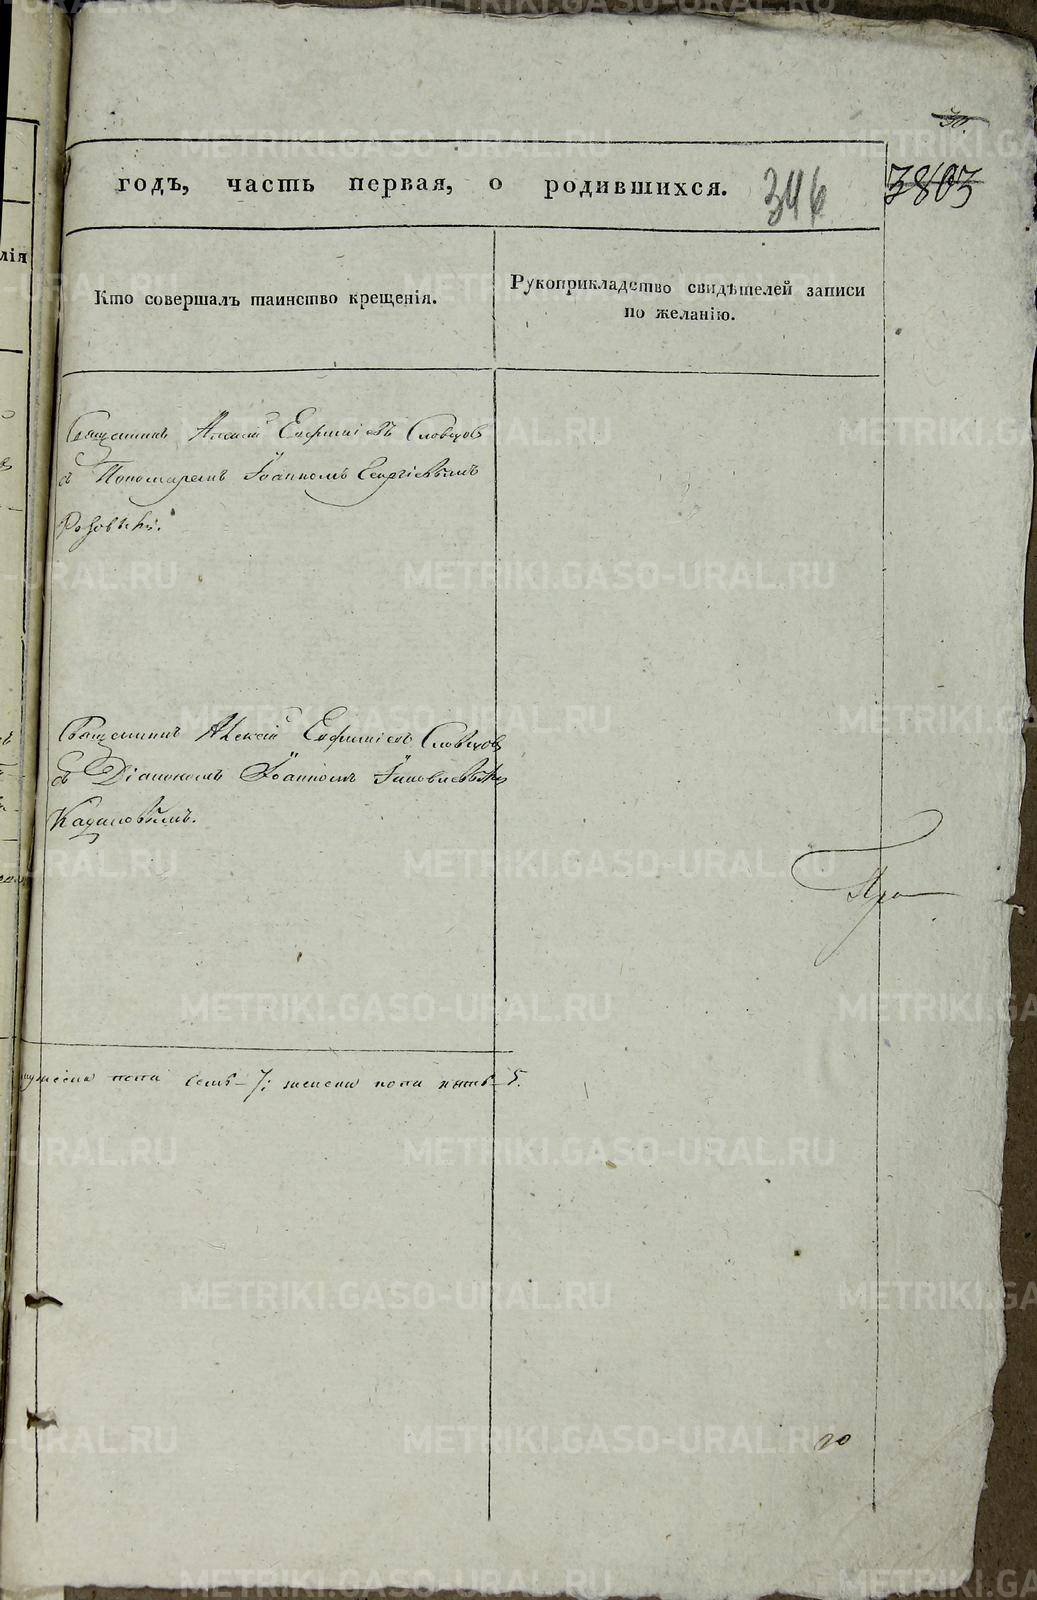 30.
годъ, часть первая, о родившихся. 346 3803
лія
Кто совершалъ таинство крещенія.
Рукоприкладство свидѣтелей записи
по желанію.
Священникъ Алексій Евфиміевъ Словцовъ
съ Пономаремъ Іоанномъ Георгіевымъ
Священникъ Алексій Евфиміевъ Словцовъ
съ Діакономъ Іоанномъ Іаковлевымъ
мужеска пола семь – 7; женска пола пять – 5.
20
METRIKI.GASO-URAL.RU